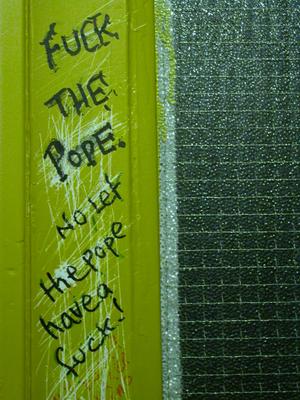 FUCK
THE
POPE.
No, let
the pope
have a
fuck!